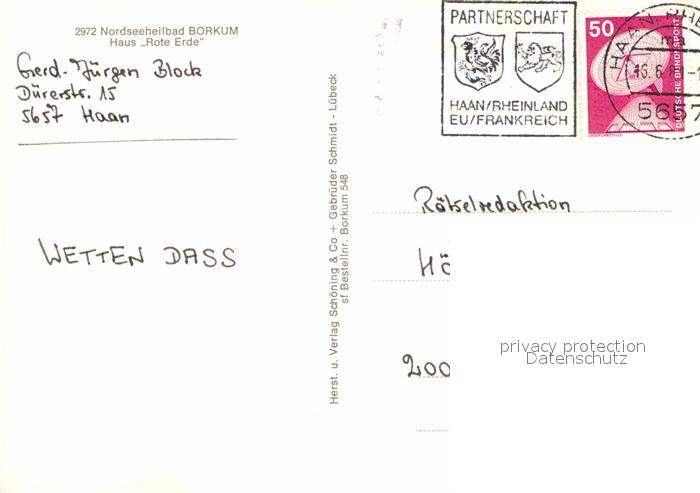 2972 Nordseeheilbad BORKUM
Haus „Rote Erde"
Gerd-Jürgen Block
Dürerstr. 15
5657 Haan
WETTEN DASS
Herst. u. Verlag Schöning & Co + Gebrüder Schmidt - Lübeck
sf Bestellnr. Borkum 548
PARTNERSCHAFT
HAAN/RHEINLAND
EU/FRANKREICH
50
DEUTSCHE BUNDESPOST
HAAN, RHE
5657
Rätselredaktion
Hö
200
privacy protection
Datenschutz